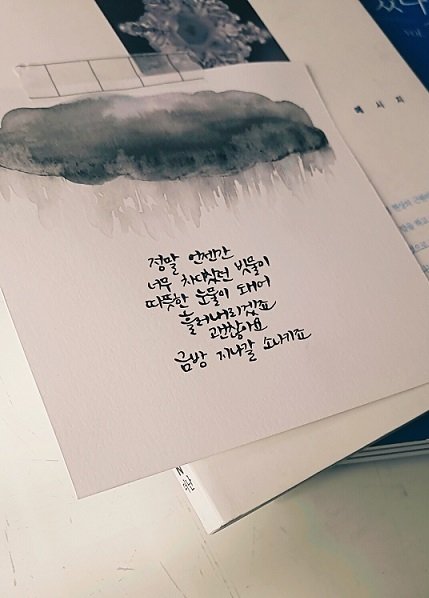 정말 언젠간
너무 차디찼던 빗물이
따뜻한 눈물이 돼어
흘러내리겠죠
괜찮아요
금방 지나갈 소나기죠